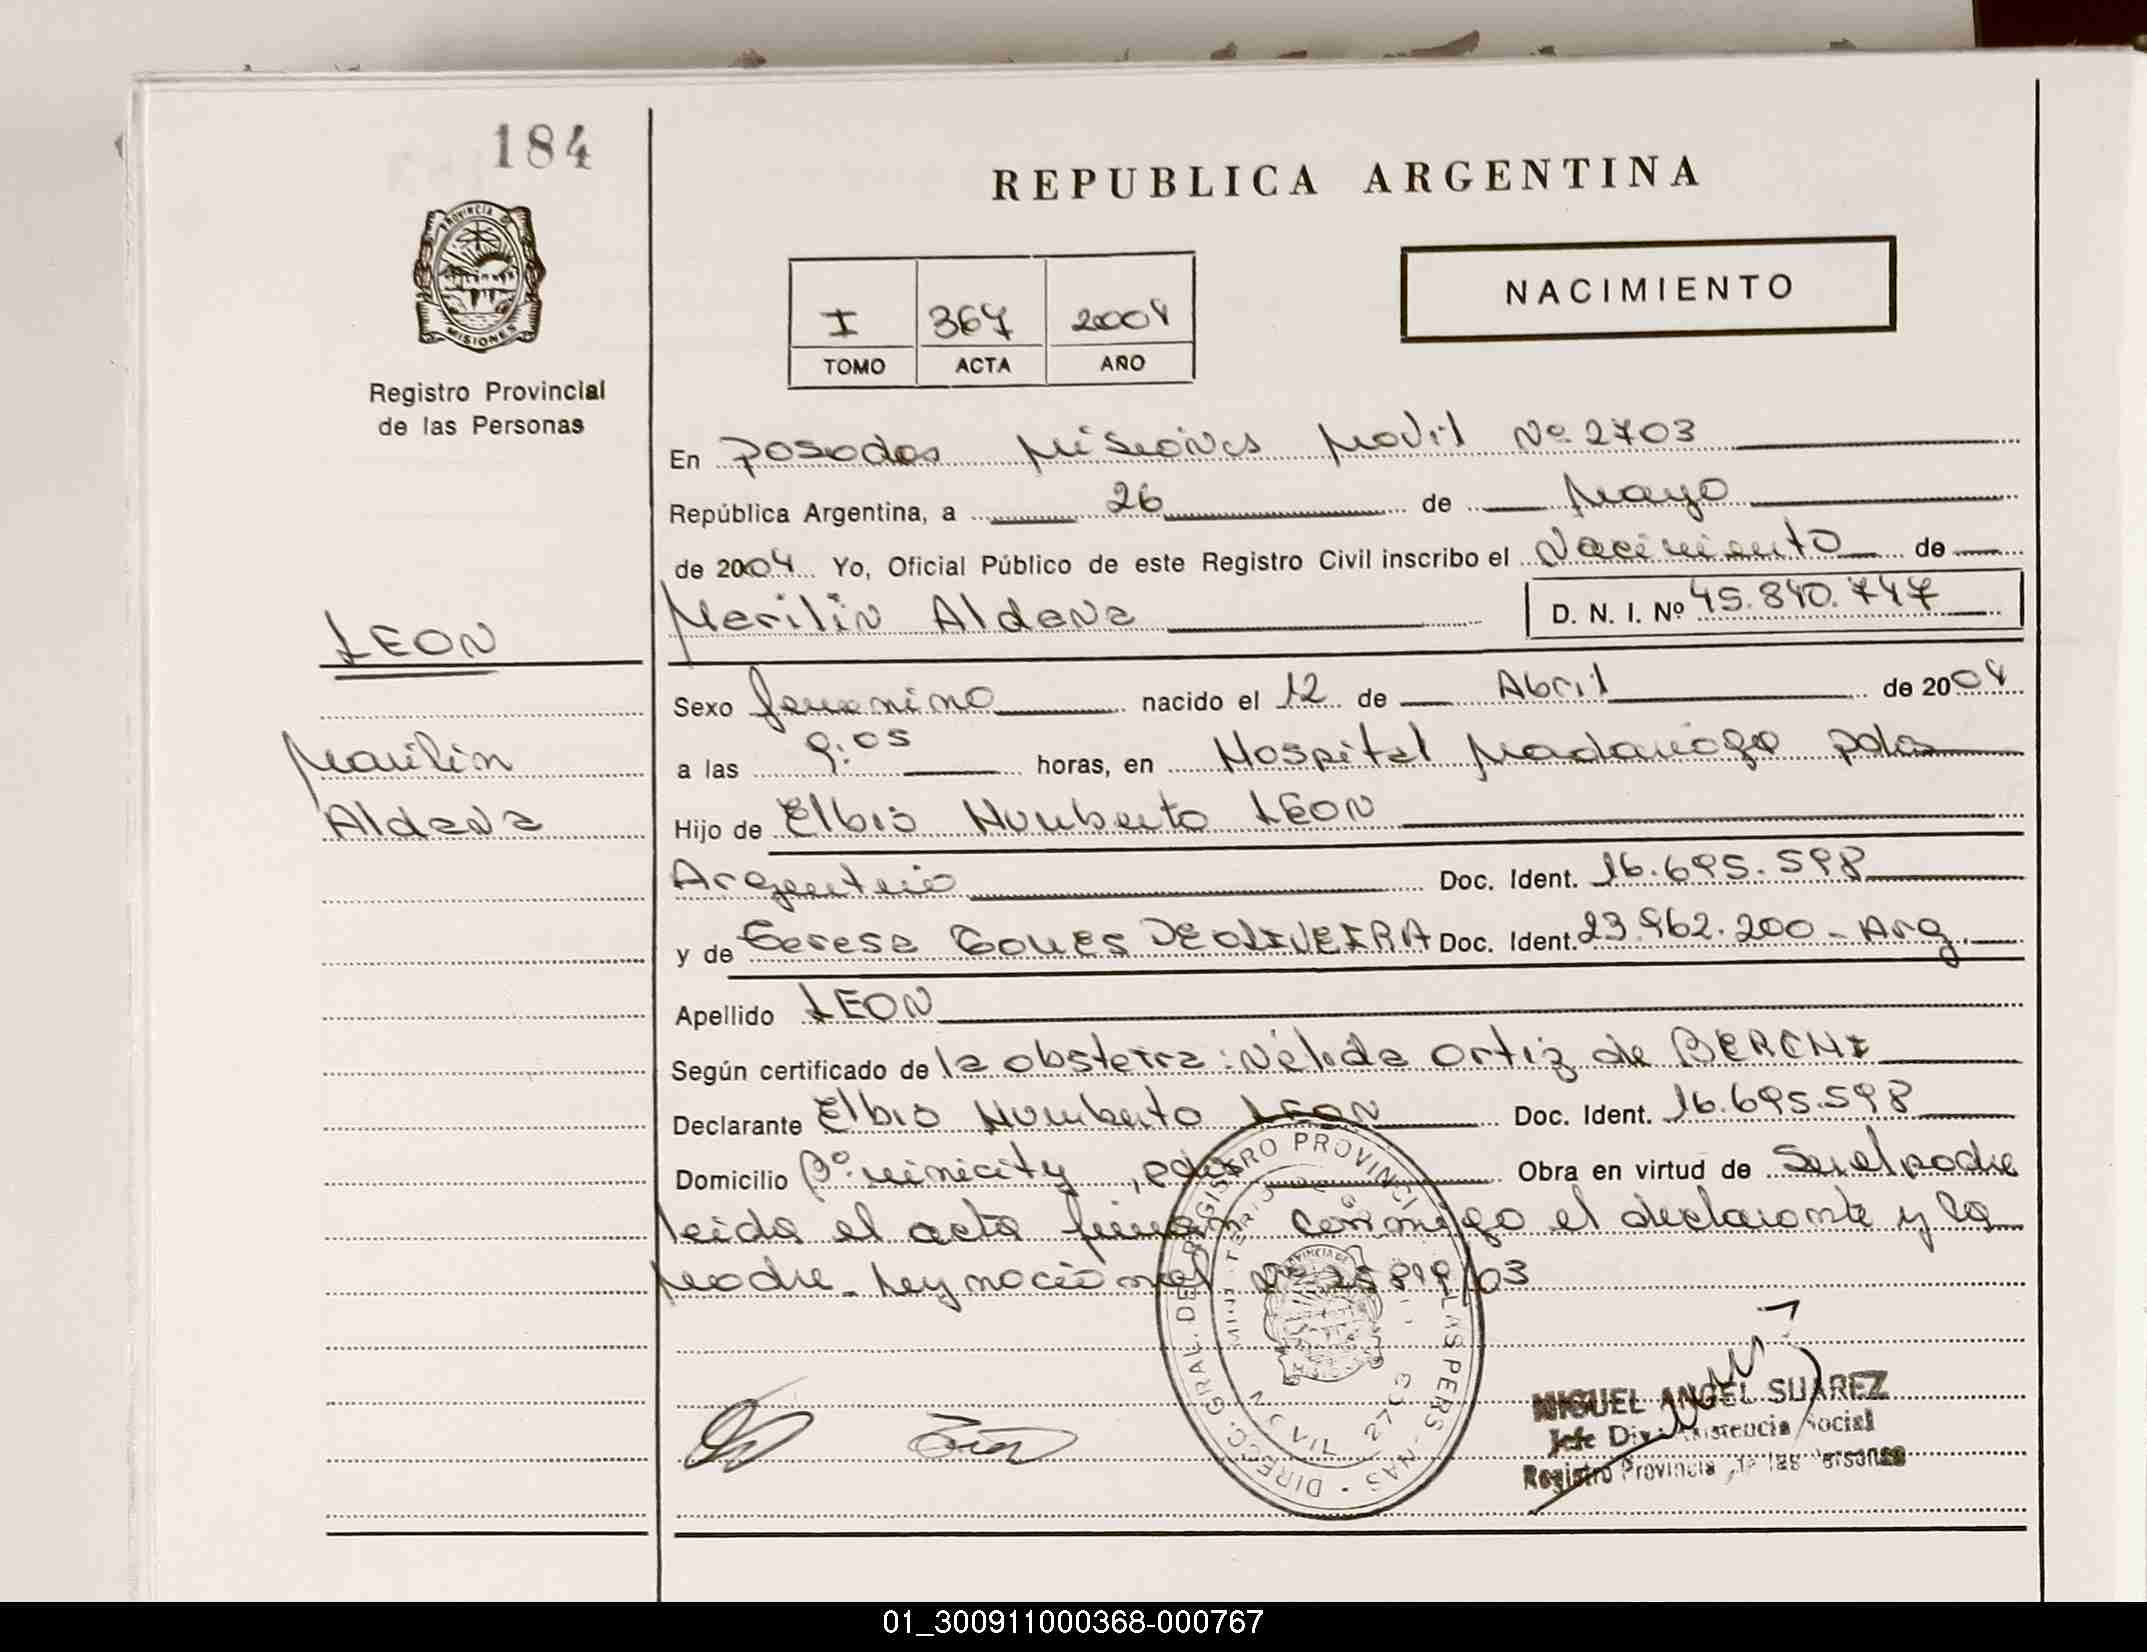 184
REPUBLICA ARGENTINA
PROVINCIA DE
MISIONES
NACIMIENTO
I 367 2004
TOMO ACTA AÑO
Registro Provincial
de las Personas
En Posadas Misiones Movil Nº 2703
República Argentina, a 26 de Mayo
de 2004 Yo, Oficial Público de este Registro Civil inscribo el Nacimiento de
LEON
Marilin Aldana D. N. I. Nº 45.840.747
Sexo femenino nacido el 12 de Abril de 2004
Marilin
a las 9:05 horas, en Hospital Madariaga pdas
Aldana
Hijo de Elbio Humberto LEON
Argentino Doc. Ident. 16.695.598
y de Teresa GOMES DE OLIVEIRA Doc. Ident. 23.962.200 - Arg.
Apellido LEON
Según certificado de la obstetra: Nélida Ortiz de BERCHI
Declarante Elbio Humberto LEON Doc. Ident. 16.695.598
Domicilio Bº minicity, pdas Obra en virtud de Ser el padre
leida el acta firman conmigo el declarante y la
Madre - Ley nacional Nº 25819/03
DIRECC. GRAL. DEL REGISTRO PROVINCIAL DE LAS PERSONAS
2703
MIGUEL ANGEL SUAREZ
Jefe Div. Asistencia Social
Registro Provincial de las Personas
01_300911000368-000767